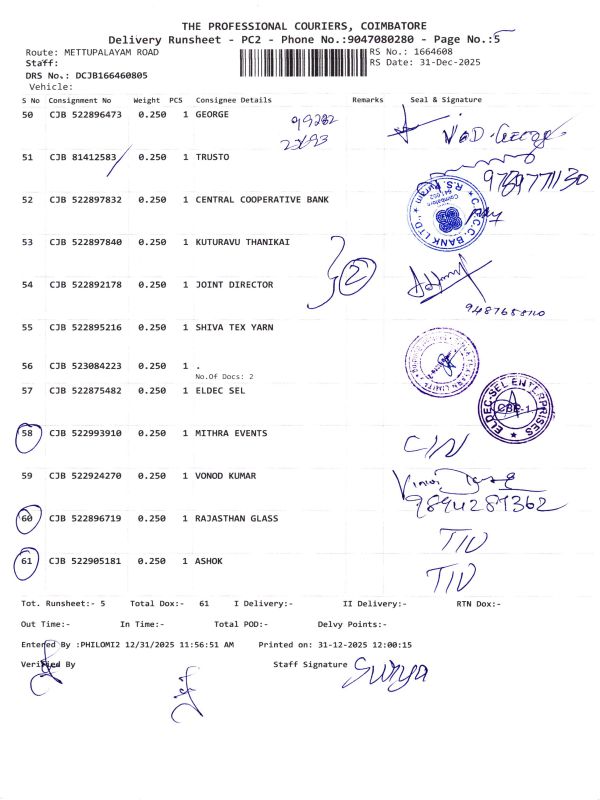 THE PROFESSIONAL COURIERS, COIMBATORE
Delivery Runsheet - PC2 - Phone No.:9047080280 - Page No.:5
Route: METTUPALAYAM ROAD RS No.: 1664608
Staff: RS Date: 31-Dec-2025
DRS No.: DCJB166460805
Vehicle:
S No Consignment No Weight PCS Consignee Details Remarks Seal & Signature
50 CJB 522896473 0.250 1 GEORGE 99282 23693 George
51 CJB 81412583 0.250 1 TRUSTO 9789771130
52 CJB 522897832 0.250 1 CENTRAL COOPERATIVE BANK C.D.C.C. BANK LTD., R.S. Puram Coimbatore
53 CJB 522897840 0.250 1 KUTURAVU THANIKAI
2
54 CJB 522892178 0.250 1 JOINT DIRECTOR
55 CJB 522895216 0.250 1 SHIVA TEX YARN
56 CJB 523084223 0.250 1 .
No.Of Docs: 2
57 CJB 522875482 0.250 1 ELDEC SEL ELDEC-SEL ENTERPRISES CBE-1
58 CJB 522993910 0.250 1 MITHRA EVENTS C/N
59 CJB 522924270 0.250 1 VONOD KUMAR
9894287362
60 CJB 522896719 0.250 1 RAJASTHAN GLASS TIN
61 CJB 522905181 0.250 1 ASHOK TIN
Tot. Runsheet:- 5 Total Dox:- 61 I Delivery:- II Delivery:- RTN Dox:-
Out Time:- In Time:- Total POD:- Delvy Points:-
Entered By :PHILOMI2 12/31/2025 11:56:51 AM Printed on: 31-12-2025 12:00:15
Verified By Staff Signature Surya